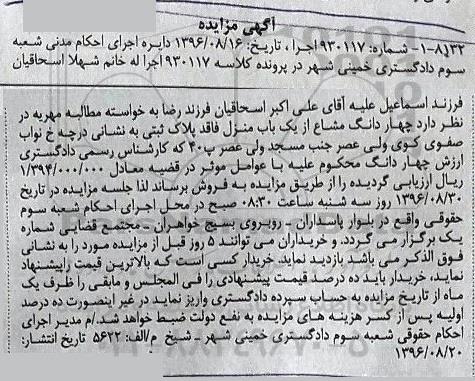 آگهی مزایده
۸J۳۲-۱- شماره: ۹۳۰۱۱۷ اجرا، تاریخ: ۱۳۹۶/۰۸/۱۶ دایره اجرای احکام مدنی شعبه
سوم دادگستری خمینی شهر در پرونده کلاسه ۹۳۰۱۱۷ اجرا له خانم شهلا اسحاقیان
فرزند اسماعیل علیه آقای علی اکبر اسحاقیان فرزند رضا به خواسته مطالبه مهریه در
نظر دارد چهار دانگ مشاع از یک باب منزل فاقد پلاک ثبتی به نشانی درچه خ نواب
صفوی کوی ولی عصر جنب مسجد ولی عصر پ۴۰ که کارشناس رسمی دادگستری
ارزش چهار دانگ محکوم علیه با عوامل موثر در قضیه معادل ۱/۳۹۴/۰۰۰/۰۰۰
ریال ارزیابی گردیده را از طریق مزایده به فروش برساند لذا جلسه مزایده در تاریخ
۱۳۹۶/۰۸/۳۰ روز سه شنبه ساعت ۰۸:۳۰ صبح در محل اجرای احکام شعبه سوم
حقوقی واقع در بلوار پاسداران ـ روبروی بسیج خواهران ـ مجتمع قضایی شماره
یک برگزار می گردد. و خریداران می توانند ۵ روز قبل از مزایده مورد را به نشانی
فوق الذکر می باشد بازدید نماید. خریدار کسی است که بالاترین قیمت راپیشنهاد
نماید، خریدار باید ده درصد قیمت پیشنهادی را فی المجلس و مابقی را ظرف یک
ماه از تاریخ مزایده به حساب سپرده دادگستری واریز نماید در غیر اینصورت ده درصد
اولیه پس از کسر هزینه های مزایده به نفع دولت ضبط خواهد شد./م مدیر اجرای
احکام حقوقی شعبه سوم دادگستری خمینی شهر ـ شیخ م/الف: ۵۶۲۲ تاریخ انتشار:
۱۳۹۶/۰۸/۲۰